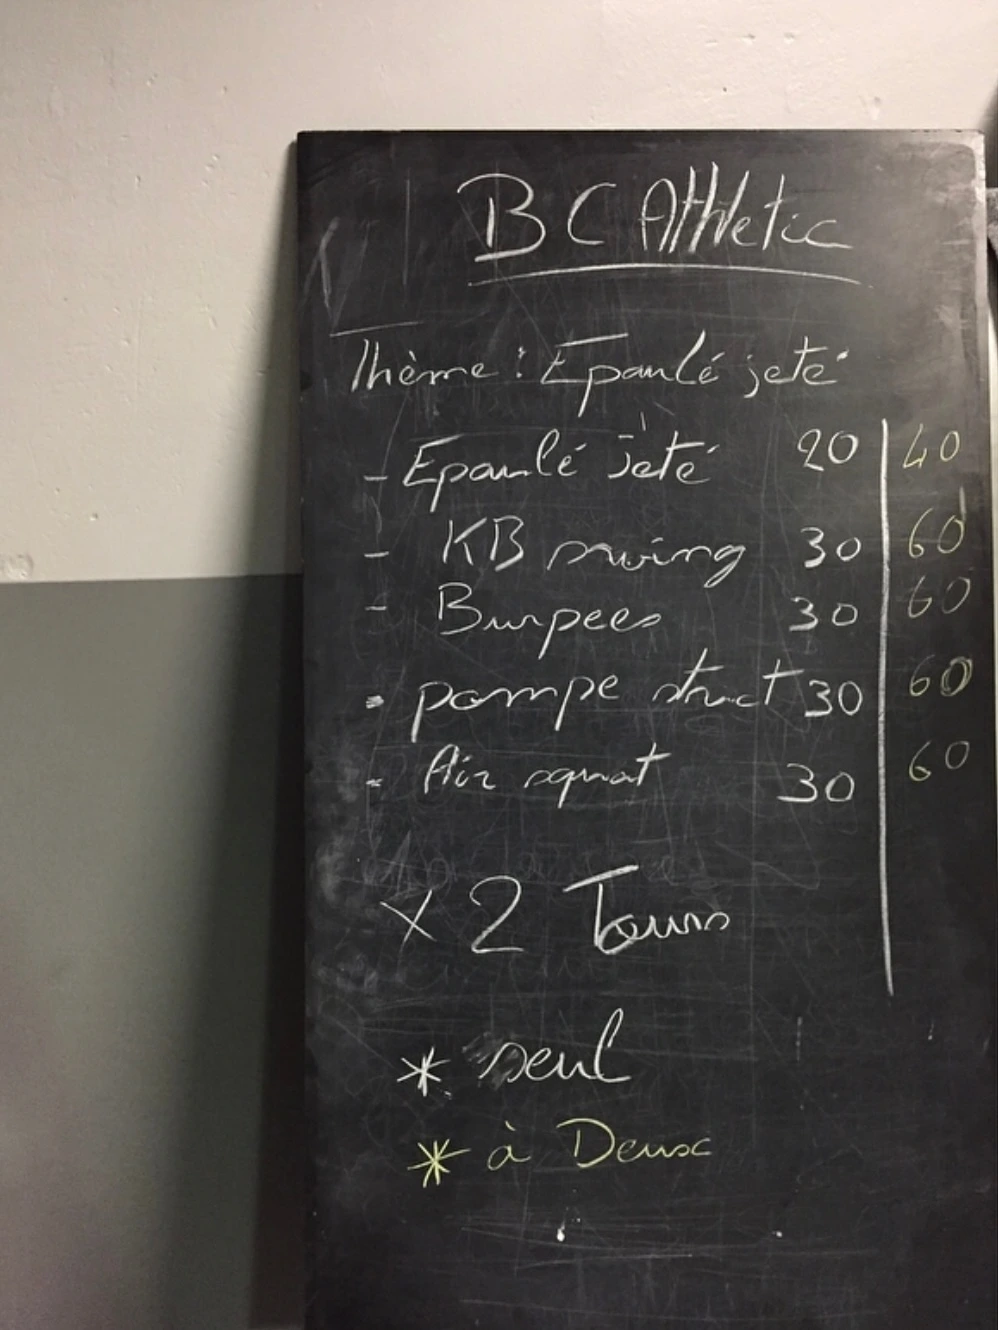 BC Athletic
Thème : Epaulé jeté
- Epaulé jeté 20 40
- KB swing 30 60
- Burpees 30 60
- pompe strict 30 60
- Air squat 30 60
x 2 Tours
* seul
* à Deux